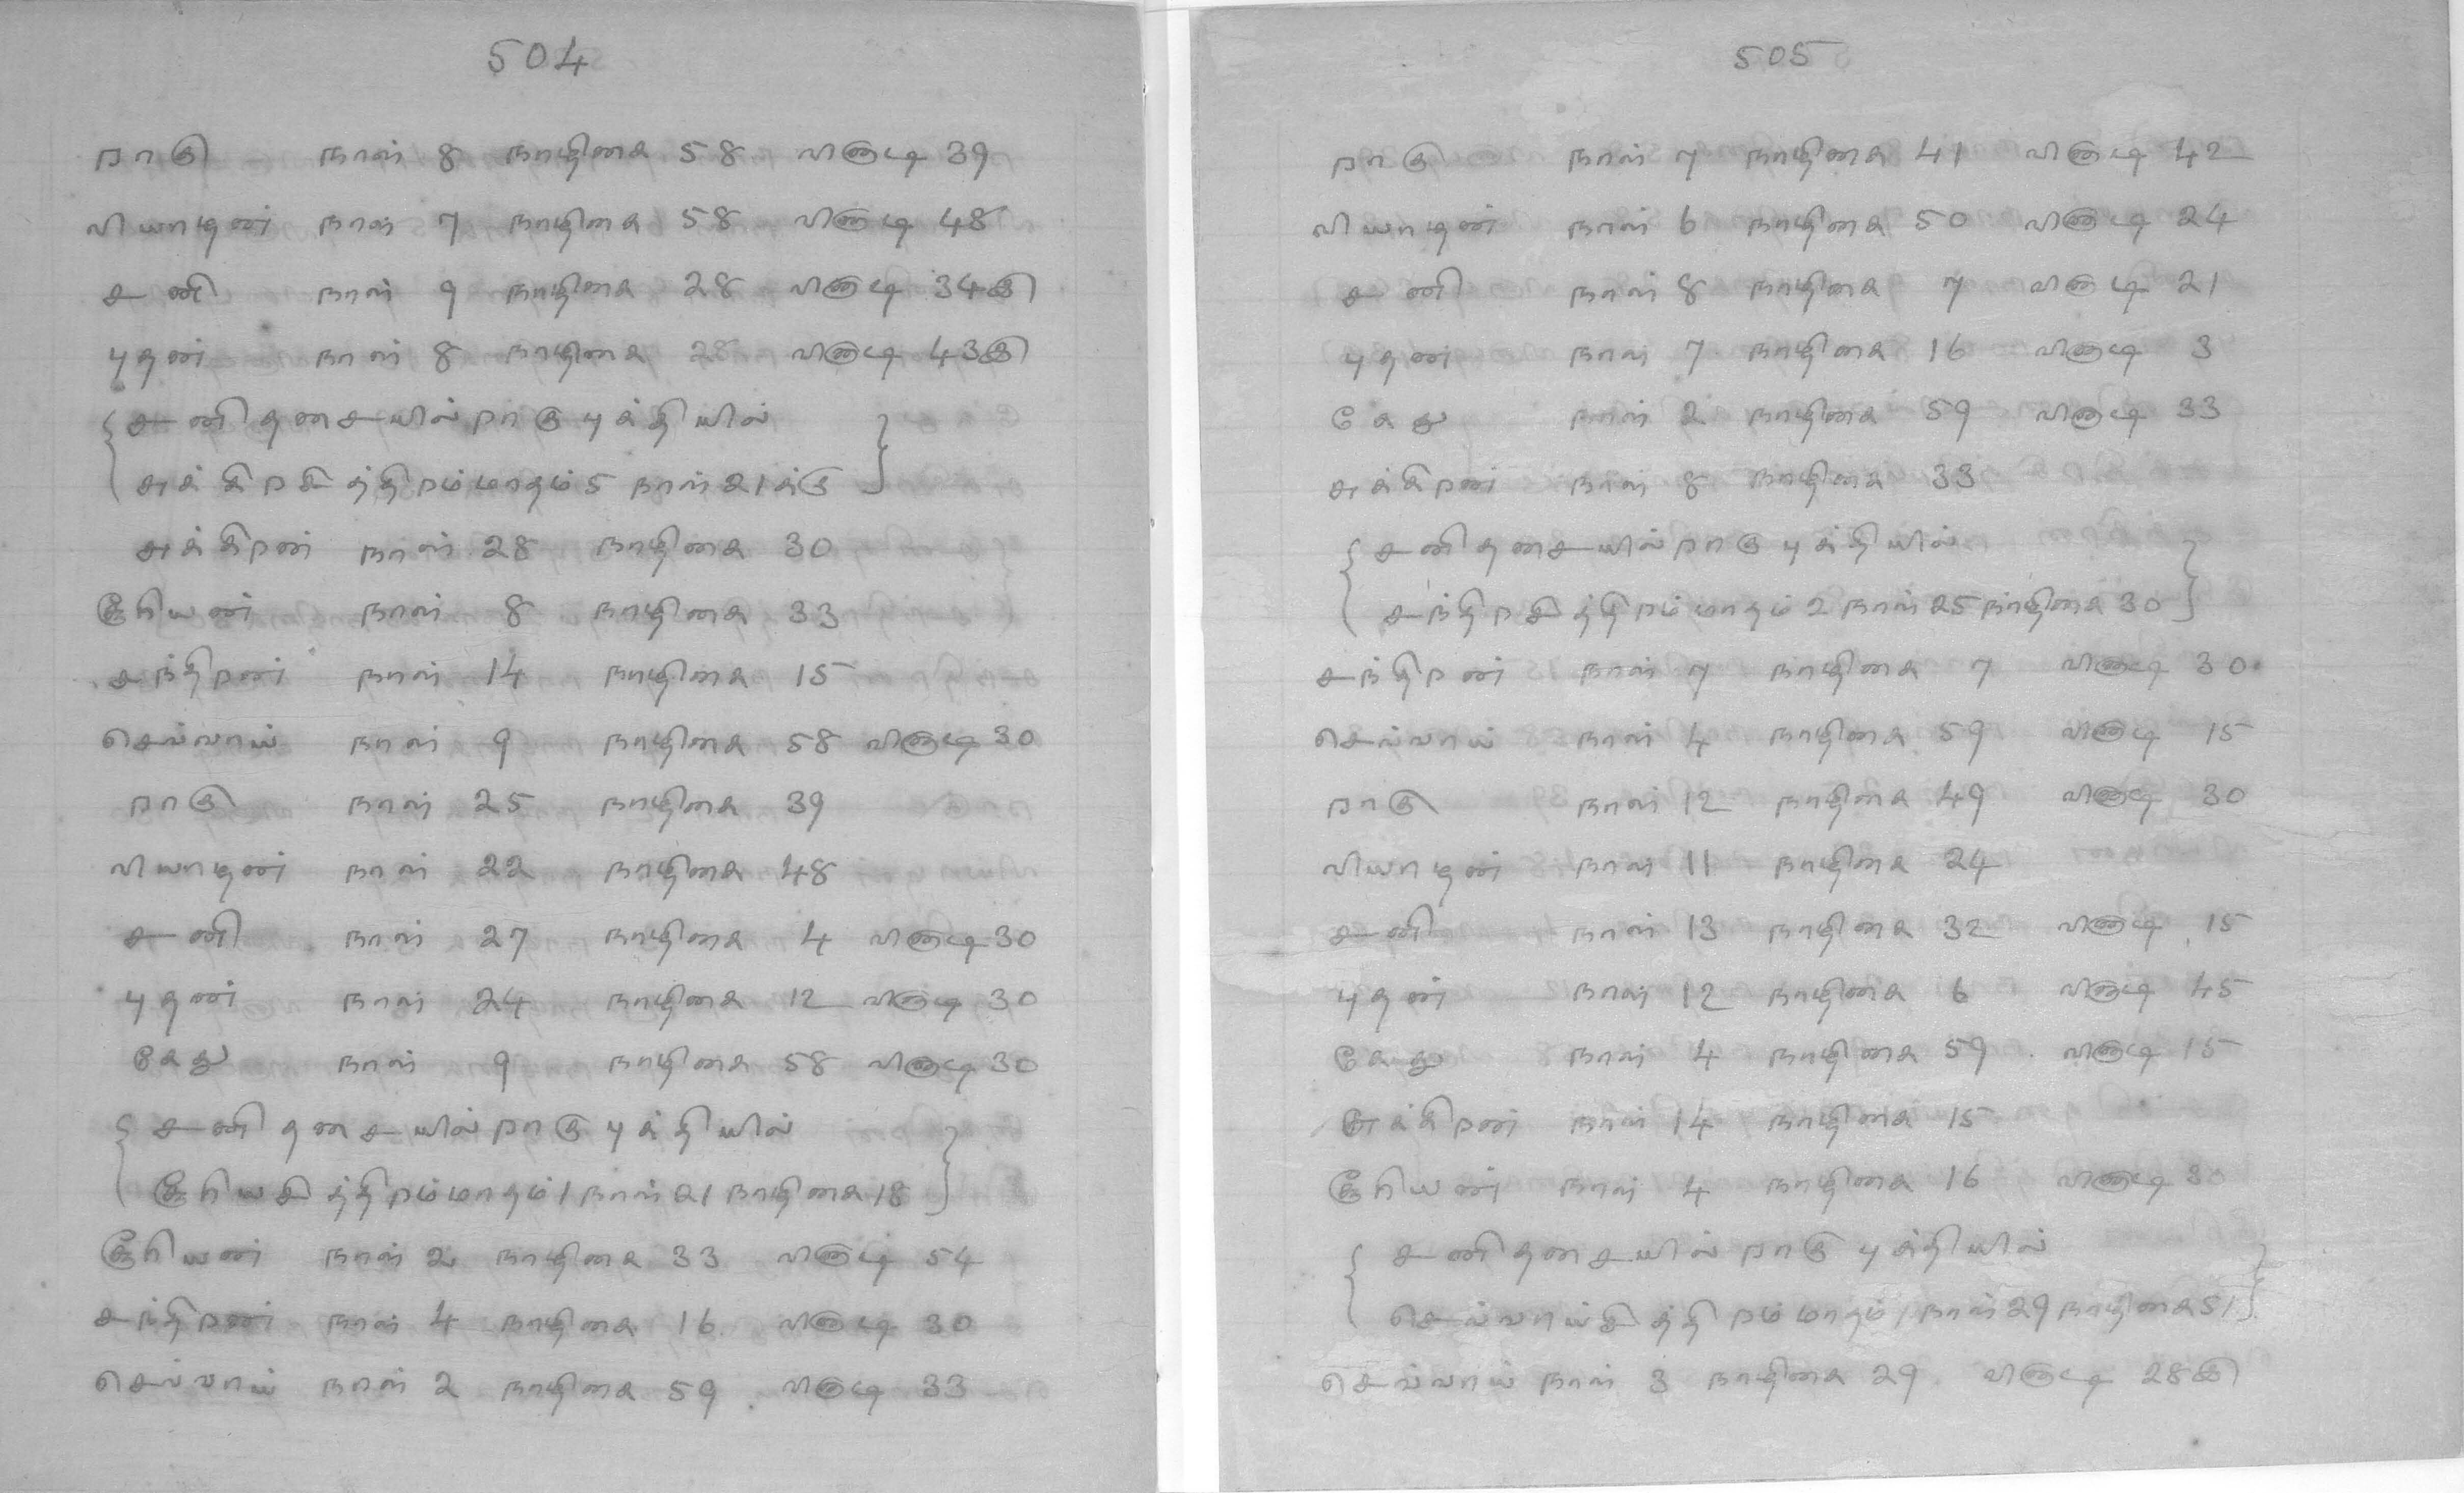 504
றாகு நாள் 8 நாழிகை 58 விநாடி 39
வியாழன் நாள் 7 நாழிகை 58 விநாடி 48
சனி நாள் 9 நாழிகை 28 விநாடி 34
புதன் நாள் 8 நாழிகை 28 விநாடி 43
சனி தசையில் றாகு புக்தியில்
சுக்கிறசித்திறம் மாதம் 5 நாள் 21க்கு
சுக்கிறன் நாள் 28 நாழிகை 30
சூரியன் நாள் 8 நாழிகை 33
சந்திறன் நாள் 14 நாழிகை 15
செவ்வாய் நாள் 9 நாழிகை 58 விநாடி 30
றாகு நாள் 25 நாழிகை 39
வியாழன் நாள் 22 நாழிகை 48
சனி நாள் 27 நாழிகை 4 விநாடி 30
புதன் நாள் 24 நாழிகை 12 விநாடி 30
கேது நாள் 9 நாழிகை 58 விநாடி 30
சனி தசையில் றாகு புக்தியில்
சூரியசித்திறம் மாதம் 1 நாள் 21 நாழிகை 18
சூரியன் நாள் 2 நாழிகை 33 விநாடி 54
சந்திறன் நாள் 4 நாழிகை 16 விநாடி 30
செவ்வாய் நாள் 2 நாழிகை 59 விநாடி 33
505
றாகு நாள் 7 நாழிகை 41 விநாடி 42
வியாழன் நாள் 6 நாழிகை 50 விநாடி 24
சனி நாள் 8 நாழிகை 7 விநாடி 21
புதன் நாள் 7 நாழிகை 16 விநாடி 3
கேது நாள் 2 நாழிகை 59 விநாடி 33
சுக்கிறன் நாள் 8 நாழிகை 33
சனி தசையில் றாகு புக்தியில்
சந்திறசித்திறம் மாதம் 2 நாள் 25 நாழிகை 30
சந்திறன் நாள் 7 நாழிகை 7 விநாடி 30
செவ்வாய் நாள் 4 நாழிகை 59 விநாடி 15
றாகு நாள் 12 நாழிகை 49 விநாடி 30
வியாழன் நாள் 11 நாழிகை 24
சனி நாள் 13 நாழிகை 32 விநாடி 15
புதன் நாள் 12 நாழிகை 6 விநாடி 45
கேது நாள் 4 நாழிகை 59 விநாடி 15
சுக்கிறன் நாள் 14 நாழிகை 15
சூரியன் நாள் 4 நாழிகை 16 விநாடி 30
சனி தசையில் றாகு புக்தியில்
செவ்வாய்சித்திறம் மாதம் 1 நாள் 29 நாழிகை 51
செவ்வாய் நாள் 3 நாழிகை 29 விநாடி 28